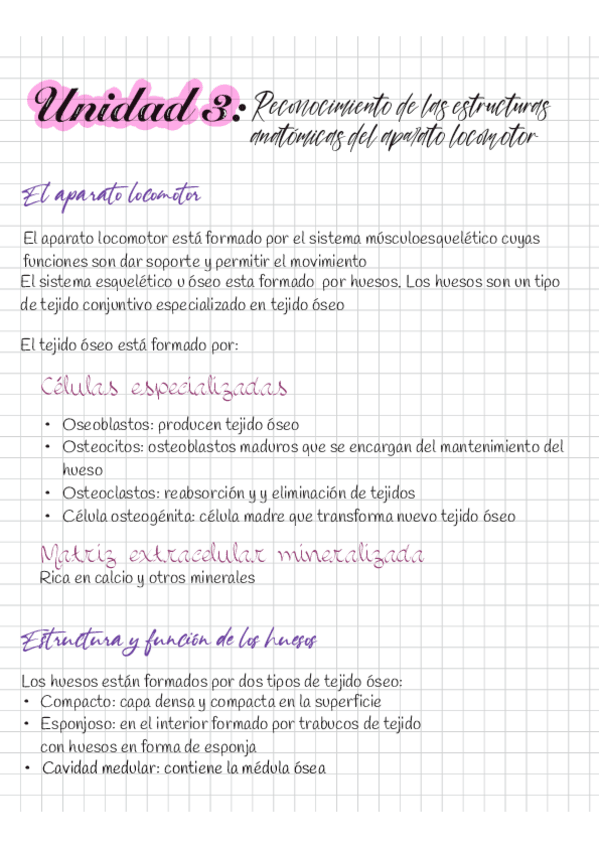 Unidad 3: Reconocimiento de las estructuras
anatómicas del aparato locomotor
El aparato locomotor
El aparato locomotor está formado por el sistema músculoesquelético cuyas
funciones son dar soporte y permitir el movimiento
El sistema esquelético u óseo esta formado por huesos. Los huesos son un tipo
de tejido conjuntivo especializado en tejido óseo
El tejido óseo está formado por:
Células especializadas
• Oseoblastos: producen tejido óseo
• Osteocitos: osteoblastos maduros que se encargan del mantenimiento del
hueso
• Osteoclastos: reabsorción y y eliminación de tejidos
• Célula osteogénita: célula madre que transforma nuevo tejido óseo
Matriz extracelular mineralizada
Rica en calcio y otros minerales
Estructura y función de los huesos
Los huesos están formados por dos tipos de tejido óseo:
• Compacto: capa densa y compacta en la superficie
• Esponjoso: en el interior formado por trabucos de tejido
con huesos en forma de esponja
• Cavidad medular: contiene la médula ósea